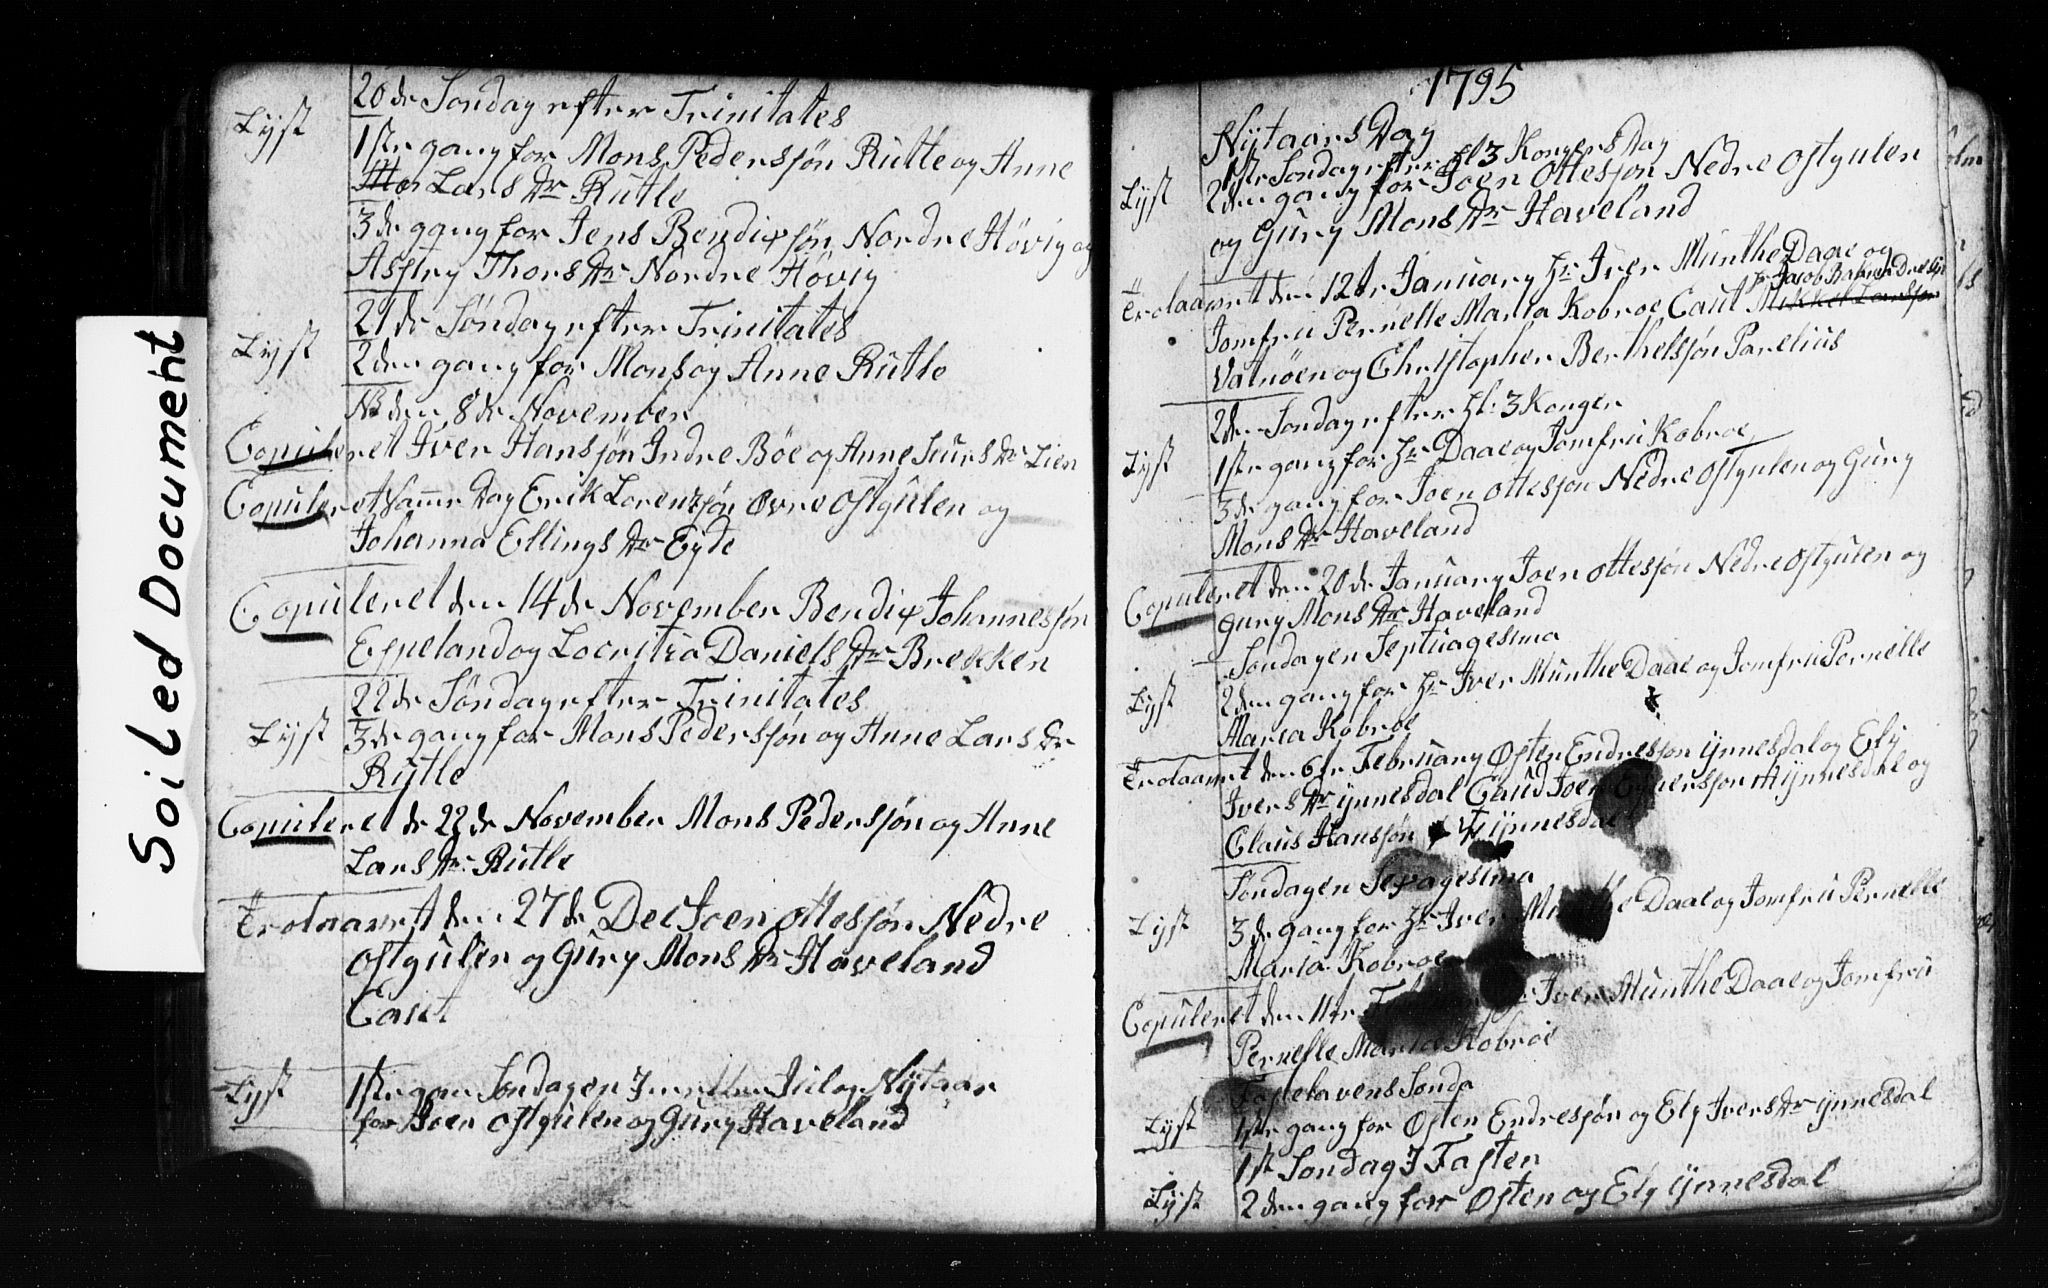 Soiled Document
20de Søndag efter Trinitates
Lyst
1ste gang for Mons Pedersøn Rutle og Anne
Lars Dr Rutle
3de gang for Jens Bendixsøn Nordre Høvig og
Thors Dr Nordre Høvig
21de Søndag efter Trinitates
Lyst
2den gang for Mons og Anne Rutle
NB den 8de November
Copuleret Iver Hansøn Indre Böe og Anne Siurs Dr Lien
Copuleret samme Dag Erik Lorentzøn Øvre Ostgulen og
Johanna Ellings Dr Eyde
Copuleret den 14de November Bendix Johannessøn
Espeland og Locritia Daniels Dr Brekken
22de Søndag efter Trinitates
Lyst 3de gang for Mons Pedersøn og Anne Lars Dr
Rytle
Copuleret d 22de November Mons Pedersøn og Anne
Lars Dr Rutle
Trolaavet den 27de Dec Joen Ottesøn Nedre
Ostgulen og Gury Mons Dr Haveland
Caut
Lyst 1ste gan Søndagen Jul og Nytaar
for Joen Ostgulen og Gury Haveland
1795
Nytaars Dag
1ste Søndag efter Hl 3 Kongers Dag
Lyst 2den gang for Joen Ottesøn Nedre Ostgulen
og Gury Mons Dr Haveland
Trolaavet den 12te January Hr Iver Munthe Daae og
Hr Jacob
Jomfru Pernelle Maria Kobroe Caut Mikkel Larssøn
Vatnöen og Christopher Berthelsøn Parelius
2den Søndag efter Hl: 3 Konger
Lyst 1ste gang for Hr Daae og Jomfru Kobroe
3de gang for Joen Ottesøn Nedre Ostgulen og Gury
Mons Dr Haveland
Copuleret den 20de January Joen Ottesøn Nedre Ostgulen og
Gury Mons Dr Haveland
Søndagen Septuagesima
Lyst 2den gang for Hr Iver Munthe Daae og Jomfru Pernelle
Maria Kobroe
Trolaavet den 6te February Østen Endresøn Ynnesdal og Ely
Ivers Dr Ynnesdal Caud Joen Ynnesdal og
Claus Hansøn Ynnesdal
Søndagen Sexagesima
Lyst 3de gang for Hr Iver Munthe Daae og Jomfru Pernelle
Maria Kobroe
Copuleret den 11te Iver Munthe Daae og Jomfru
Pernelle Maria Kobroe
Fastelavens Sonda
Lyst 1ste gang for Østen Endresøn og Ely Ivers Dr Ynnesdal
1st Søndag J Fasten
Lyst 2den gang for Østen og Ely Ynnesdal